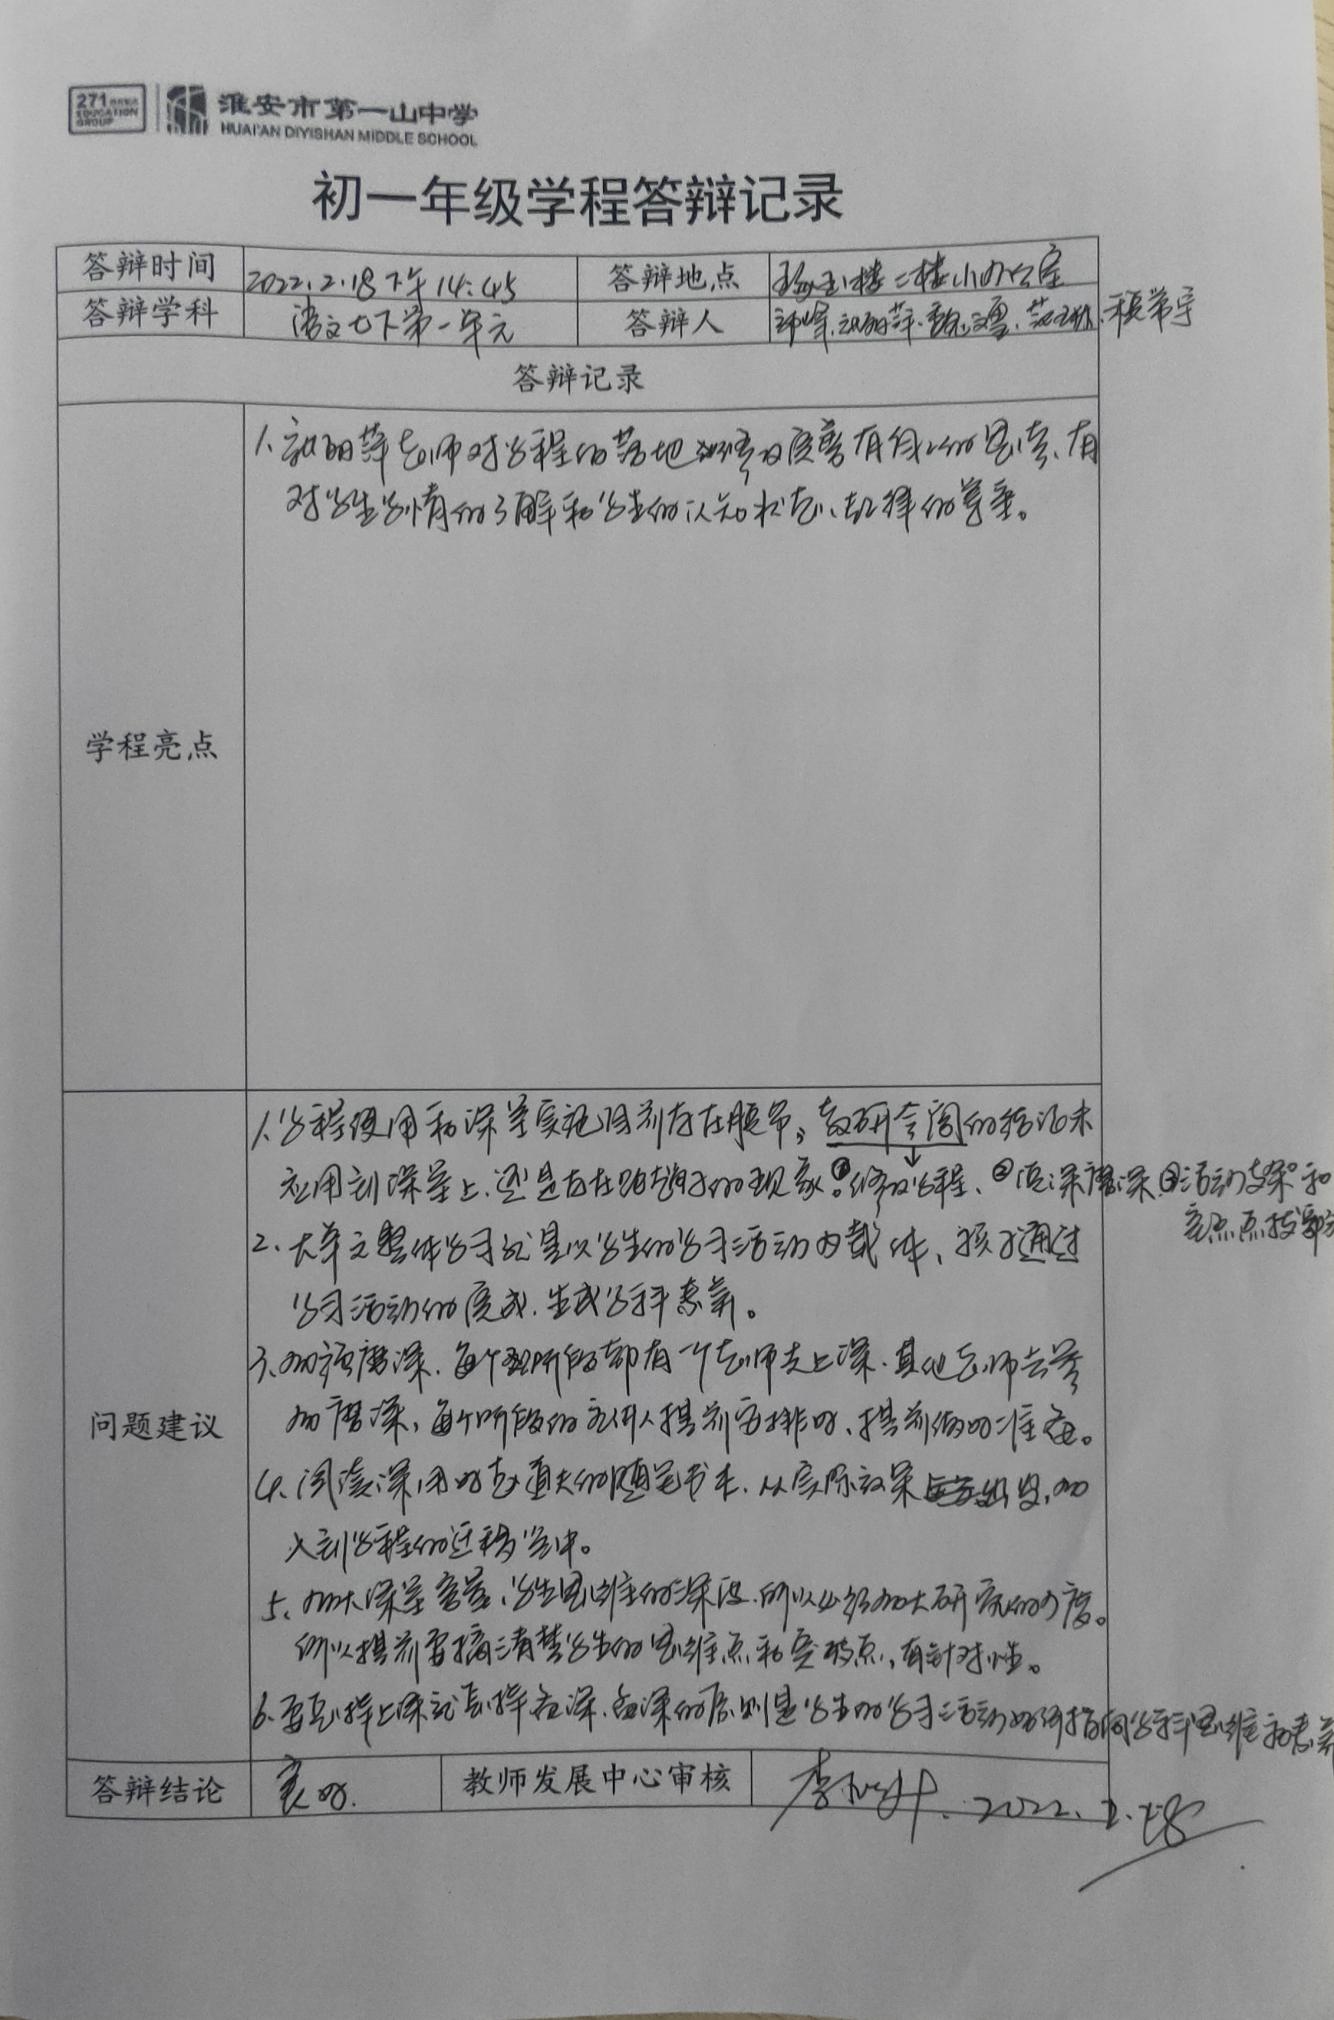 271 EDUCATION GROUP
淮安市第一山中学
HUAI'AN DIYISHAN MIDDLE SCHOOL
初一年级学程答辩记录
答辩时间 2022.2.18下午14:45 答辩地点 楼二楼小办公室
答辩学科 语文七下第一单元 答辩人
答辩记录
学程亮点
1.老师对学程的落地、修改完善有自己的思考、有
对学生学情的了解和学生的认知状态、规律的尊重。
问题建议
1.学程使用和课堂实施目前存在脱节,教研会阅的结论未
应用到课堂上,还是存在的现象。①修改学程、②磨课③活动支架和
点点拨
2.大单元整体学习就是以学生的学习活动为载体,孩子通过
学习活动的完成,生成学科素养。
3.加强磨课,每个阶段都有一个老师去上课,其他老师去参
加磨课,每个阶段的主讲人提前安排好,提前做好准备。
4.阅读课用好的随笔书本,从实际效果出发,加
入到学程的迁移当中。
5.加大课堂容量、学生思维的深度,所以必须加大研究的力度。
所以提前要搞清楚学生的思维点和突破点,有针对性。
6.要怎样上课就怎样备课,备课的原则是学生的学习活动如何指向学科思维和素养
答辩结论 良好. 教师发展中心审核 2022.2.18